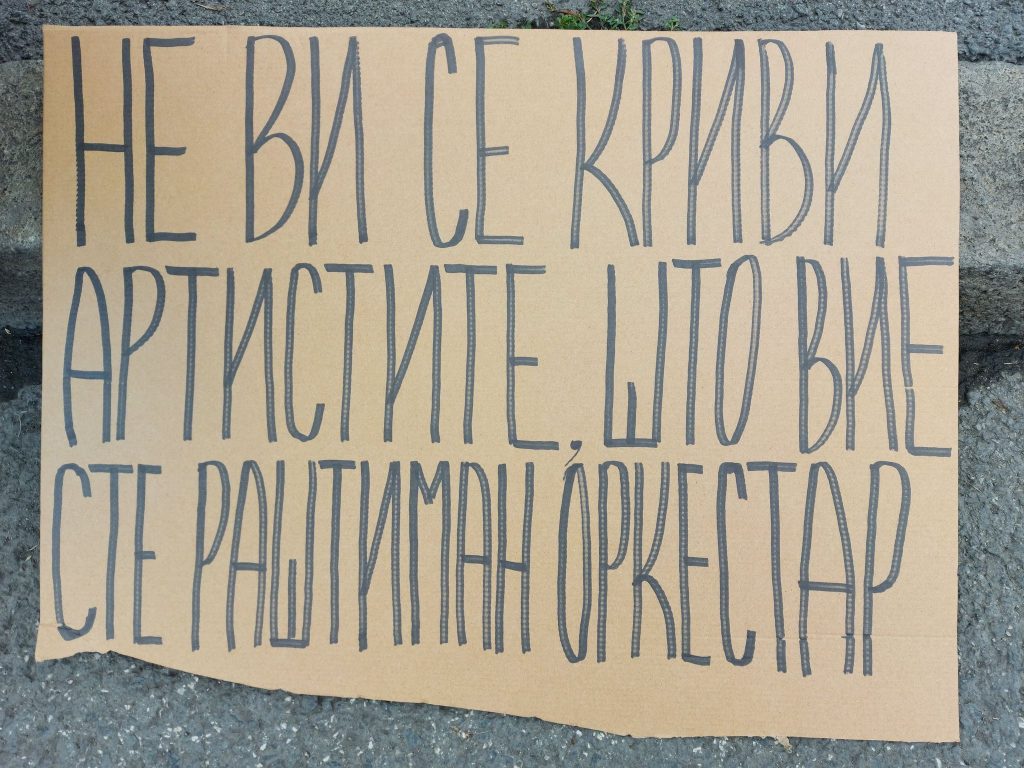 НЕ ВИ СЕ КРИВИ
АРТИСТИТЕ, ШТО ВИЕ
СТЕ РАШТИМАН ОРКЕСТАР